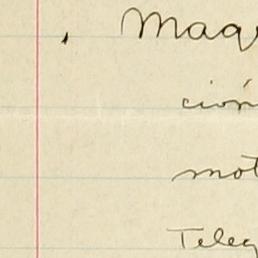 Maq
ción
mot
Teleg